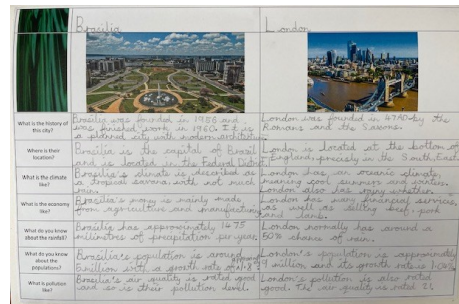 Brasilia
London
What is the history of this city?
Brasilia was founded in 1956 and was finished work in 1960. It is a planned city with modern architecture.
London was founded in 47AD by the Romans and the Saxons.
Where is their location?
Brasilia is the capital of Brazil and is located in the Federal District.
London is located at the bottom of England, precisely in the South East.
What is the climate like?
Brasilia's climate is described as a tropical savana, with not much rain.
London has an oceanic climate, meaning cool summers and winters. London also has rainy whether.
What is the economy like?
Brasilia's money is mainly made from agriculture and manufacturing
London has many financial services, as well as selling beef, pork and lamb.
What do you know about the rainfall?
Brasilia has approximately 1475 milimetres of precapilation per year.
London normally has around a 50% chance of rain.
What do you know about the populations?
Brasilia's population is around 5 million with a growth rate of
London's population is approximately 9 million and its growth rate is
What is pollution like?
Brasilia's air quality is rated good and so is their pollution level.
London's pollution is also rated good. The air quality is rated 21.